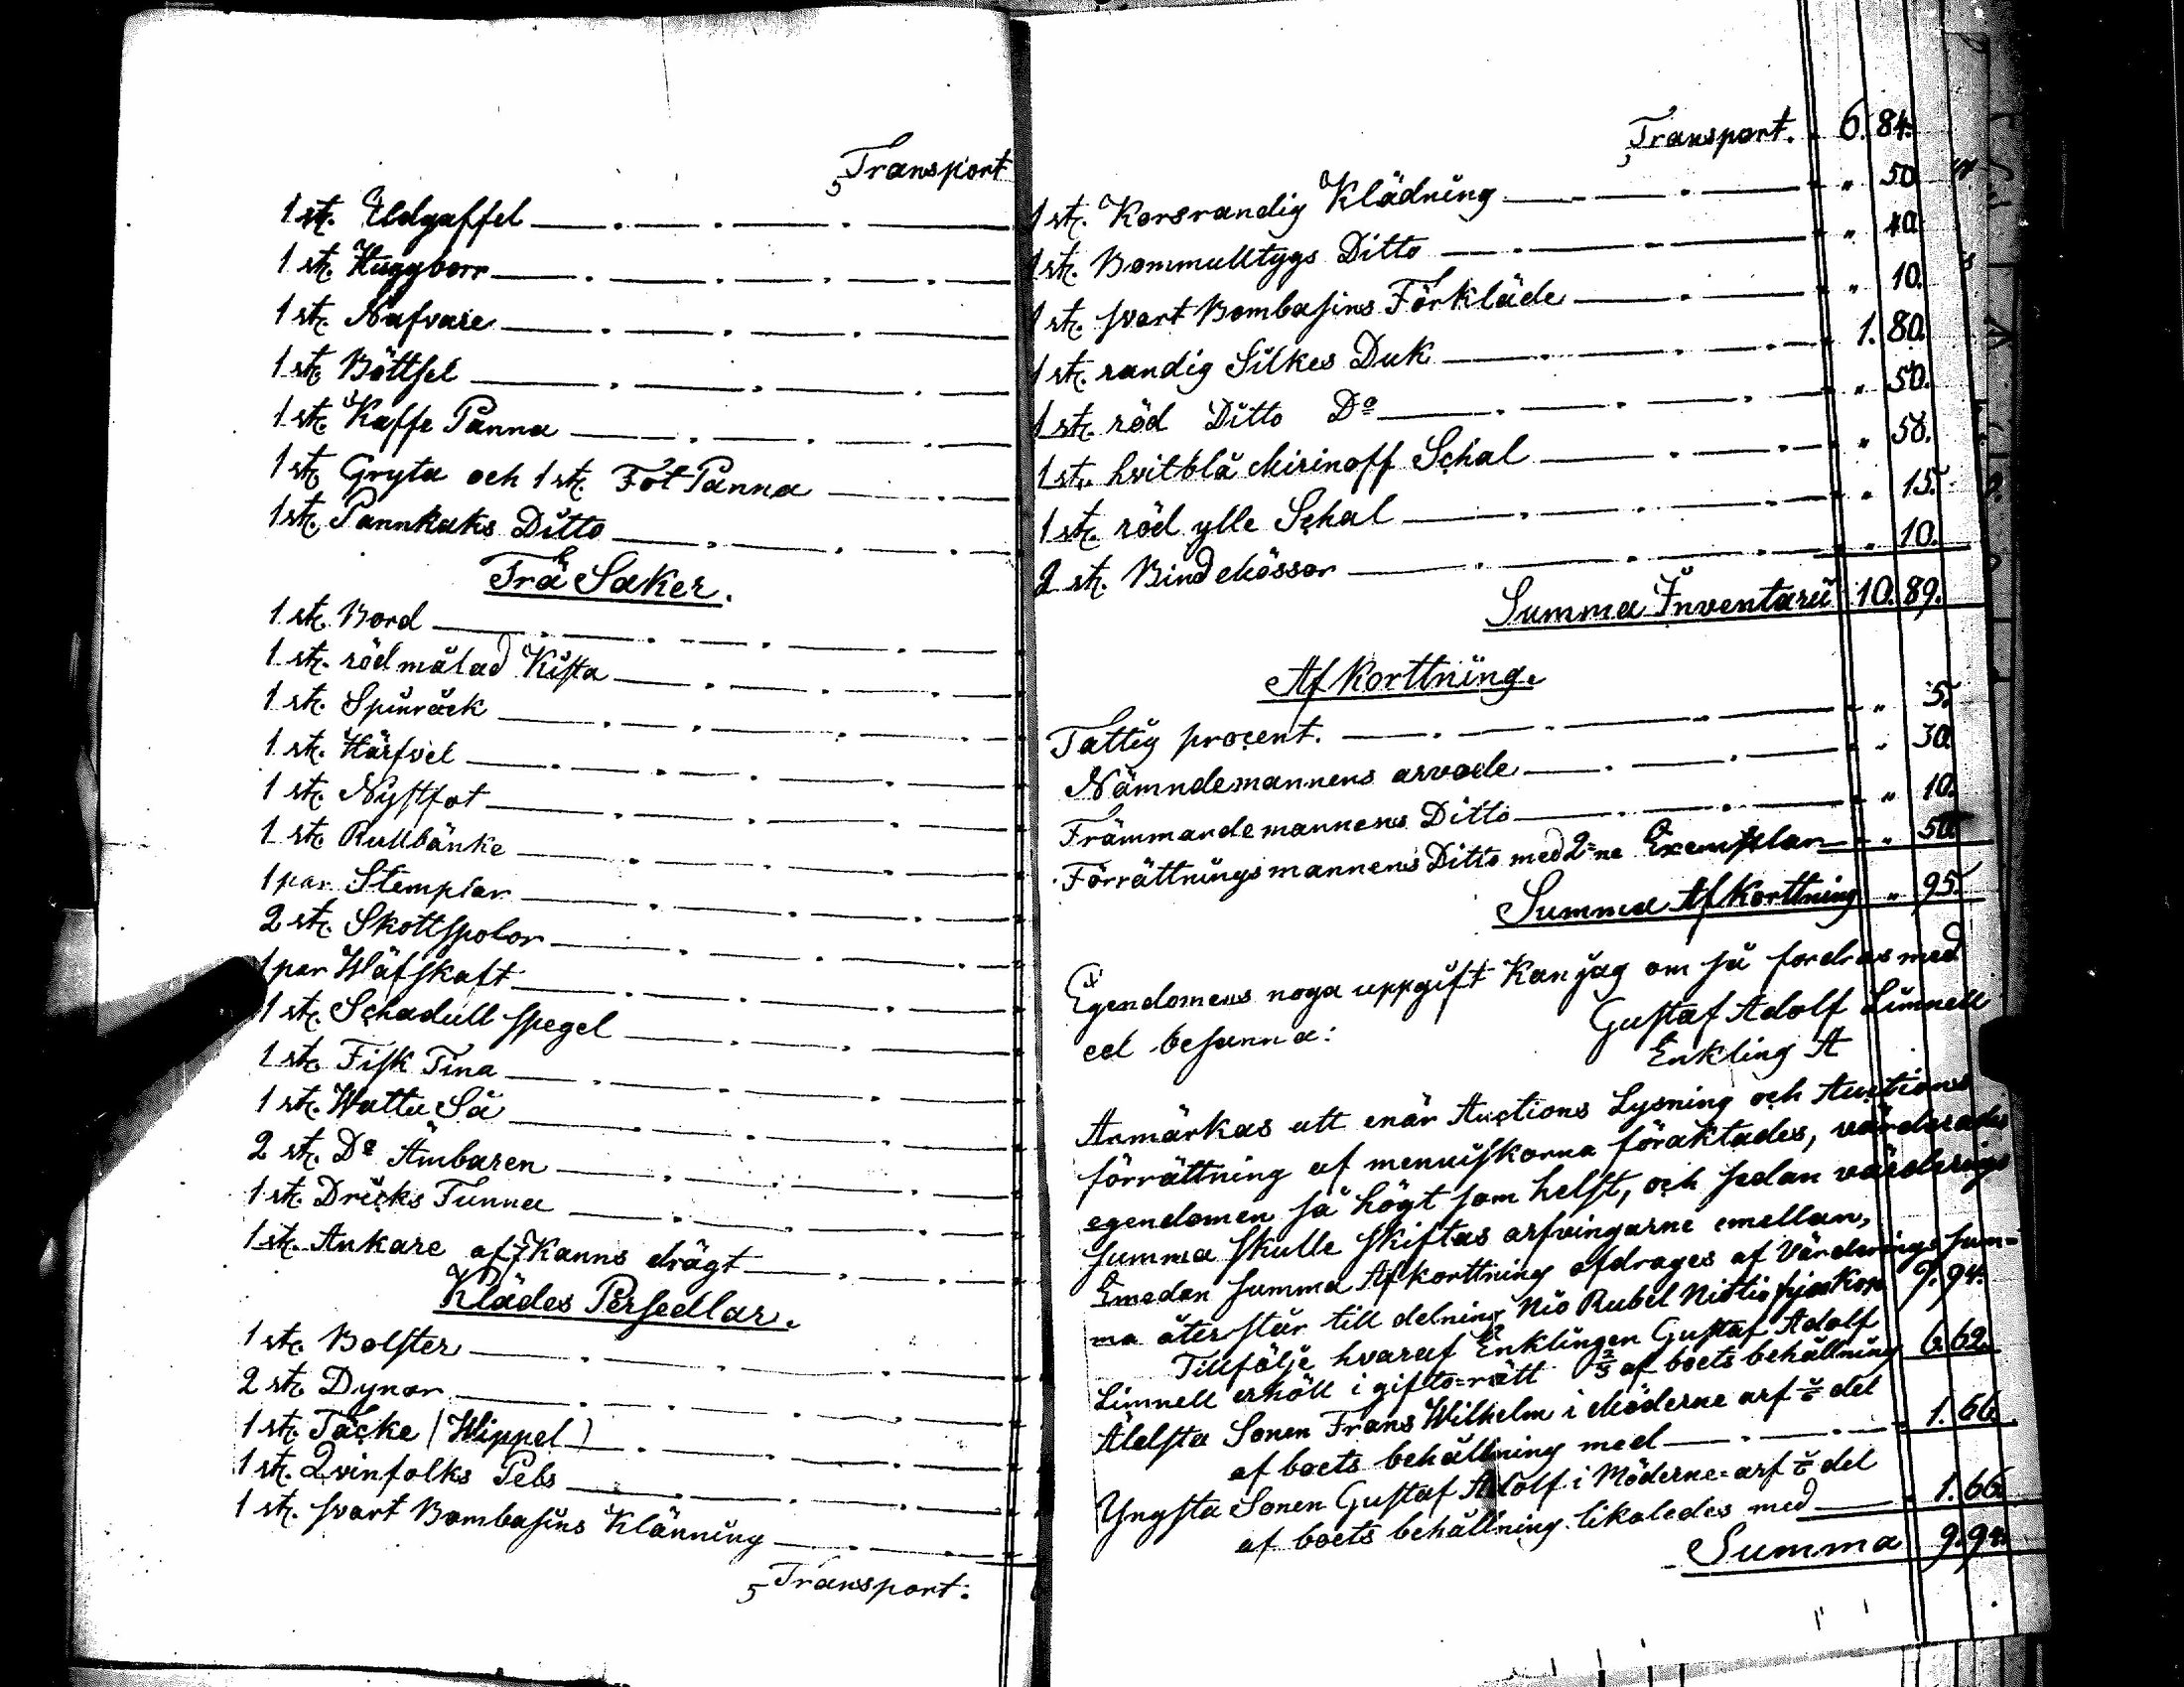 Transport
1 st. Eldgaffel
1 st. Huggborr
1 st. Nafvare
1 st. Böttsel
1 st. Kaffe Panna
1 st. Gryta och 1 st. Fot Panna
1 st. Pannkaks Ditto
Trä Saker.
1 st. Bord
1 st. röd målad Kista
1 st. Spinråck
1 st. Härfvel
1 st. Nystfot
1 st. Rullbänke
1 par Stemplar
2 st. Skottspolor
1 par Wäfskaft
1 st. Schadull spegel
1 st. Fisk Tina
1 st. Wattu Så
2 st. Do Ämbaren
1 st. Dricks Tunna
1 st. Ankare af 7 Kanns drägt
Klädes Persedlar.
1 st. Bolster
2 st. Dynor
1 st. Täcke (Wippel)
1 st. Qvinfolks Pels
1 st. svart Bombasins Klänning
Transport:
Transport. 6. 84.
1 st. Korsrandig Klädning " 50
1 st. Bommulltygs Ditto " 40.
1 st. svart Bombasins Förkläde " 10.
1 st. randig Silkes Duk 1. 80.
1 st. röd Ditto Do " 50.
1 st. hvitblå Mirinoff Schal " 50.
1 st. röd ylle Schal " 15.
2 st. Bind Mössor " 10.
Summa Inventarii 10. 89.
Afkorttning.
Fattig procent. " 5.
Nämndemannens arvode " 30.
Främmandemannens Ditto " 10.
Förrättningsmannens Ditto med 2ne Exemplar " 50.
Summa Afkorttning " 95.
Egendomens noga uppgift Kan jag om så fordras med
ed besanna:
Gustaf Adolf Limnell
Enkling
Anmärkas att enär Auctions Lysning och Auctions
förrättning af menniskorna föraktades, värderades
egendomen så högt som helst, och sedan värderings
summa skulle skiftas arfvingarne emellan,
Emedan summa Afkorttning afdrages af Värderings sum=
ma återstår till delning Nio Rubel Nittio fyra Kop 9. 94.
Tillfölje hvaraf Enklingen Gustaf Adolf
Limnell erhöll i gifto=rätt 2/3 af boets behållning 6. 62.
Älelsta Sonen Frans Wilhelm i Möderne arf 1/6 del
af boets behållning med 1. 66.
Yngsta Sonen Gustaf Adolf i Möderne=arf 1/6 del
af boets behållning likaledes med 1. 66.
Summa 9. 94.